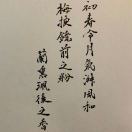 初春令月氣淑風和
梅披鏡前之粉
蘭薫珮後之香